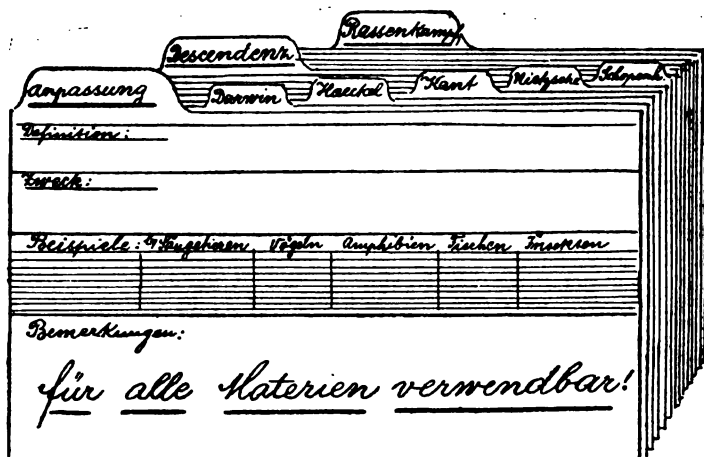 Rassenkampf
Descendenz
Anpassung Darwin Haeckel Kant Nietzsche Schopenh.
Definition:
Zweck:
Beispiele: by Säugetieren Vögeln Amphibien Fischen Insekten
Bemerkungen:
für alle Materien verwendbar!